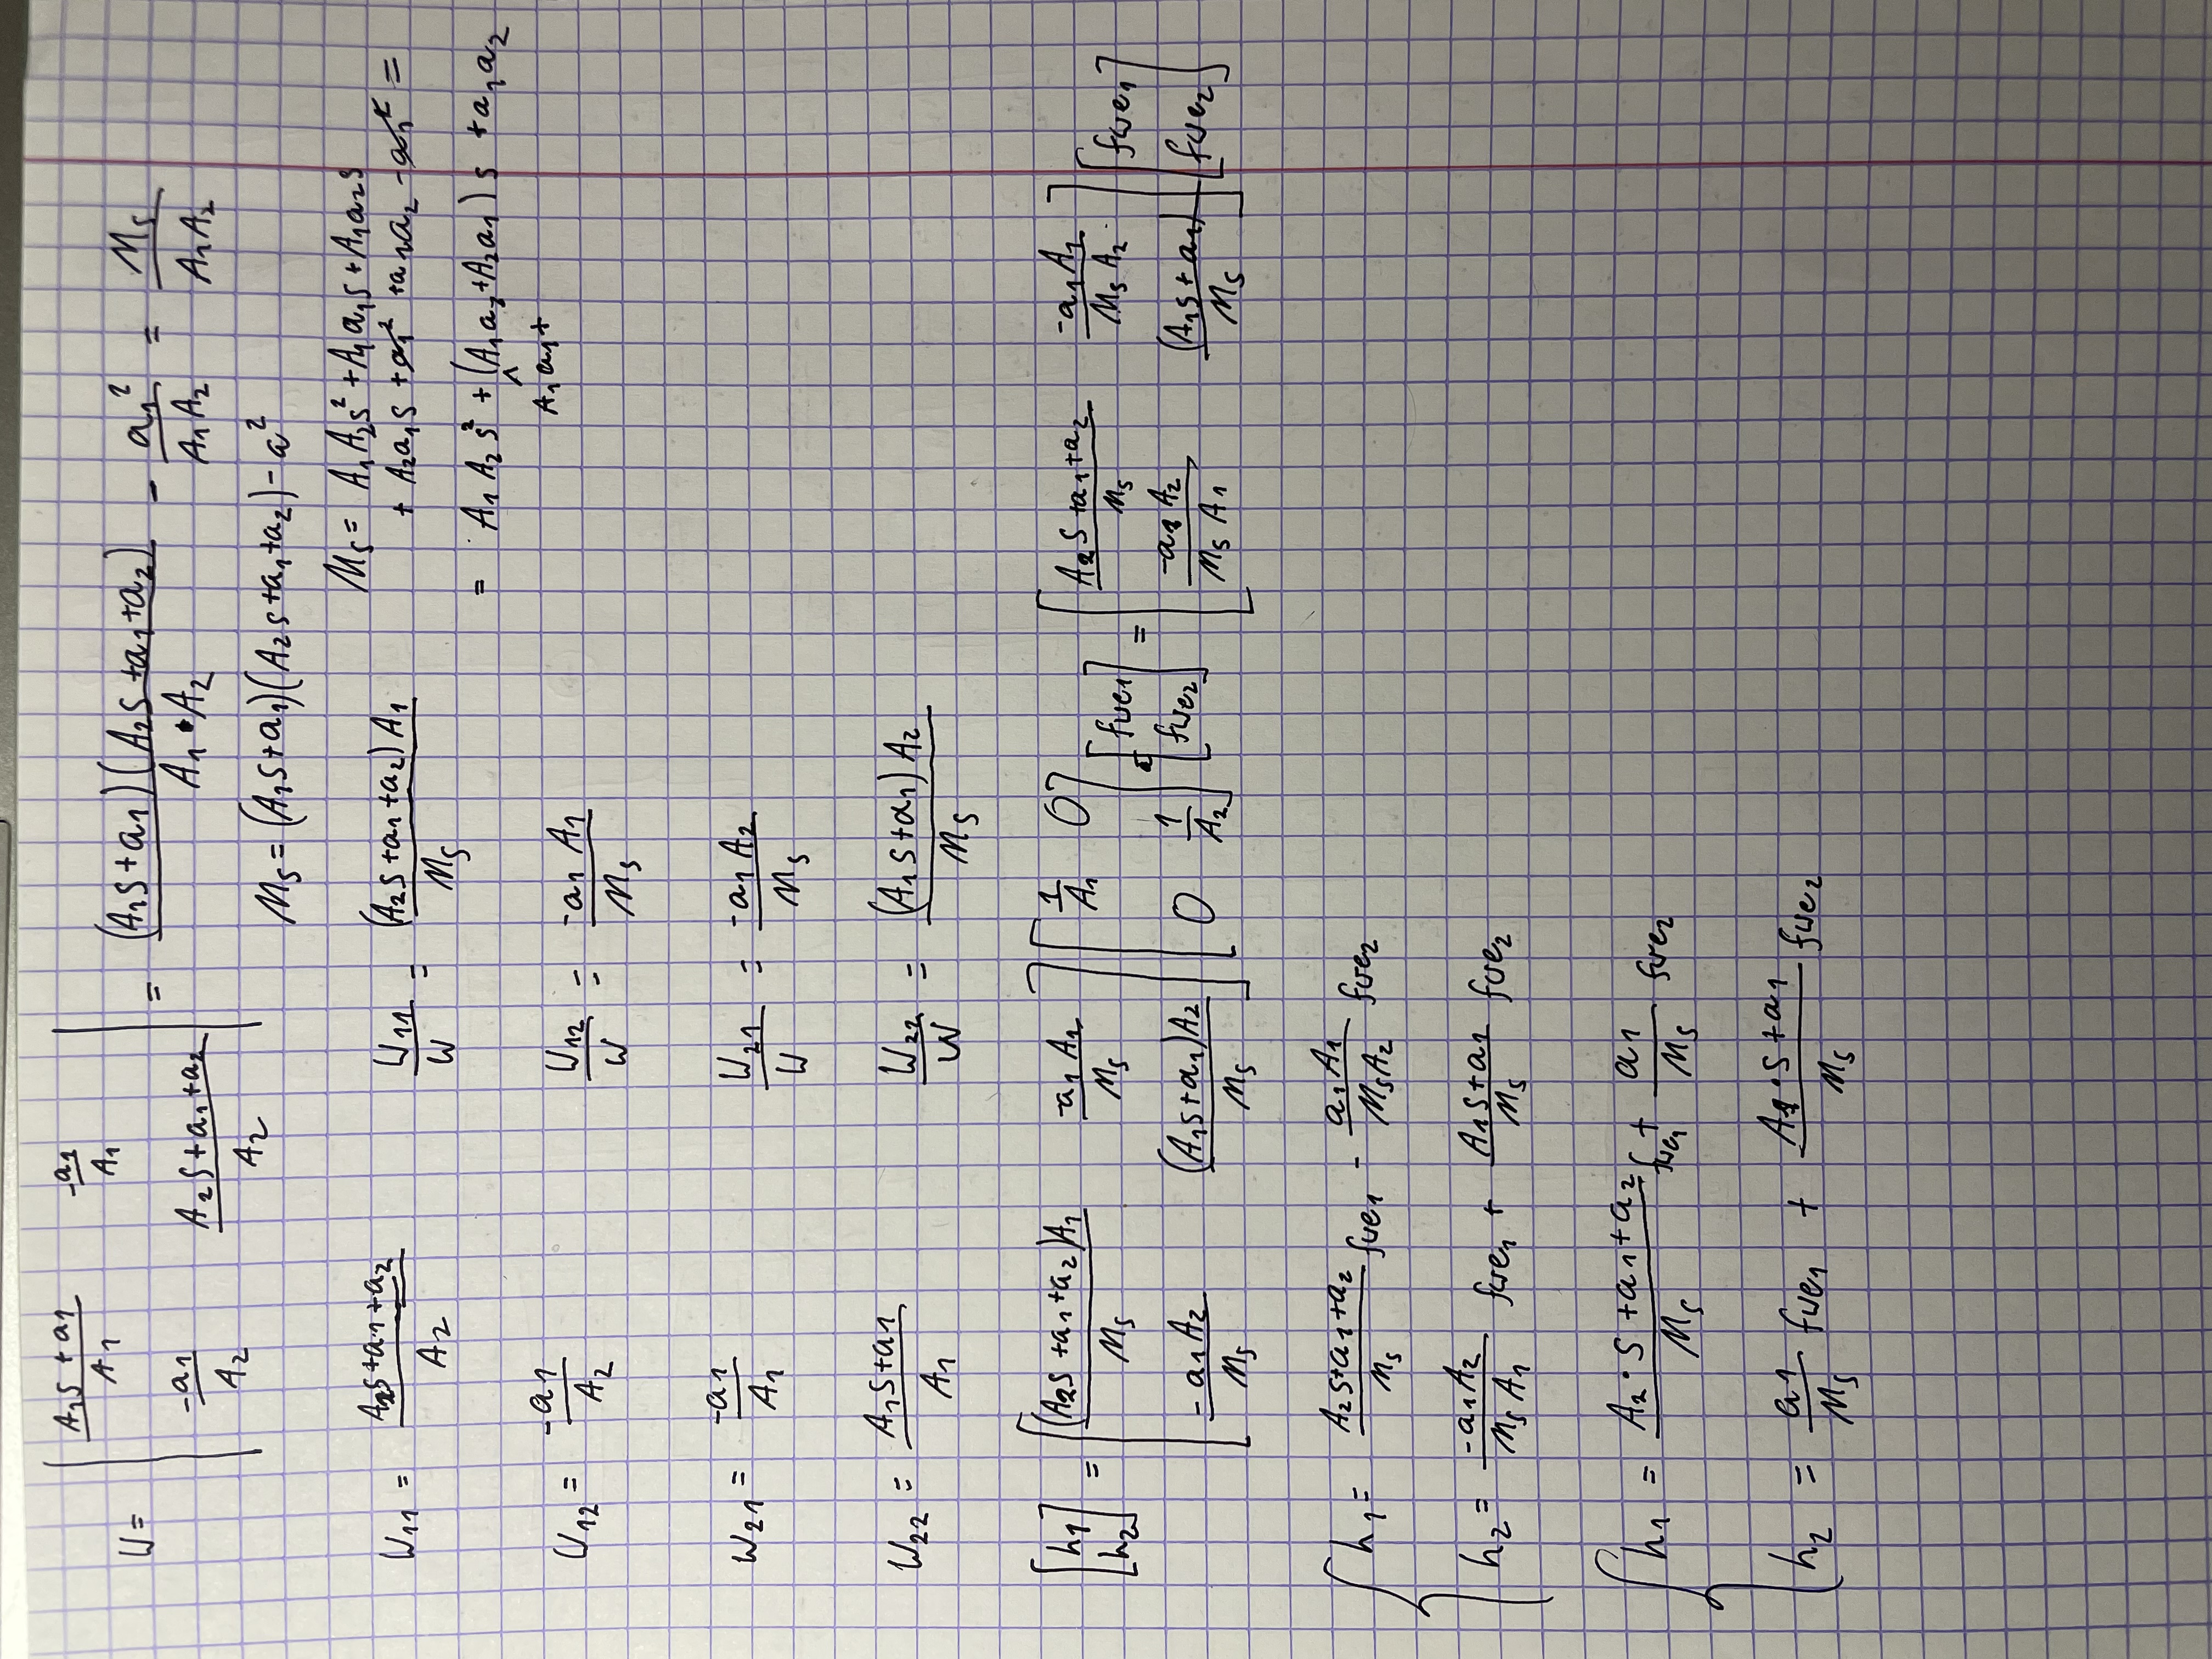 W = | (A₁s + a₁)/A₁   -a₁/A₁ ; -a₁/A₂   (A₂s + a₁ + a₂)/A₂ | = (A₁s + a₁)(A₂s + a₁ + a₂)/(A₁ · A₂) - a₁²/(A₁A₂) = Ms/(A₁A₂)
Ms = (A₁s + a₁)(A₂s + a₁ + a₂) - a²
Ms = A₁A₂s² + A₁a₁s + A₁a₂s
+ A₂a₁s + a₁² + a₁a₂ - a₁² =
= A₁A₂s² + (A₁a₂ + A₂a₁)s + a₁a₂
^
A₁a₁ +
W₁₁ = (A₂s + a₁ + a₂)/A₂   W₁₁/W = (A₂s + a₁ + a₂)A₁/Ms
W₁₂ = -a₁/A₂   W₁₂/W = -a₁A₁/Ms
W₂₁ = -a₁/A₁   W₂₁/W = -a₁A₂/Ms
W₂₂ = (A₁s + a₁)/A₁   W₂₂/W = (A₁s + a₁)A₂/Ms
[h₁ ; h₂] = [(A₂s + a₁ + a₂)A₁/Ms   -a₁A₁/Ms ; -a₁A₂/Ms   (A₁s + a₁)A₂/Ms] [1/A₁   0 ; 0   1/A₂] · [fwe₁ ; fwe₂] = [(A₂s + a₁ + a₂)/Ms   -a₁A₁/(MsA₂) ; -a₁A₂/(MsA₁)   (A₁s + a₁)/Ms] [fwe₁ ; fwe₂]
h₁ = (A₂s + a₁ + a₂)/Ms fwe₁ - a₁A₁/(MsA₂) fwe₂
h₂ = -a₁A₂/(MsA₁) fwe₁ + (A₁s + a₁)/Ms fwe₂
h₁ = (A₂ · s + a₁ + a₂)/Ms fwe₁ + a₁/Ms fwe₂
h₂ = a₁/Ms fwe₁ + (A₁ · s + a₁)/Ms fwe₂